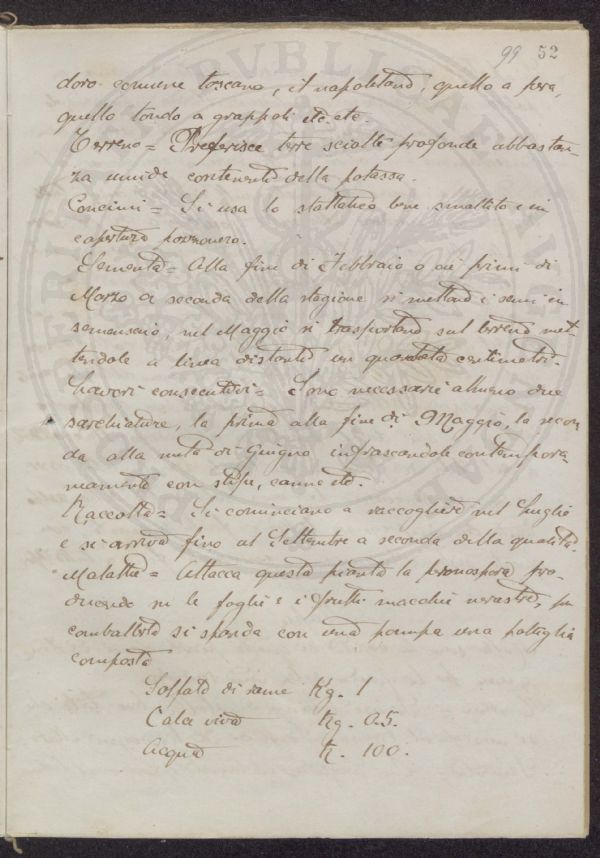 99 52
doro comune toscano, il napoletano, quello a pera,
quello tondo a grappoli etc. etc.
Terreno = Preferisce terre sciolte profonde abbastan
za umide contenenti della potassa.
Concimi = Si usa lo stallatico bene smaltito e in
copertura
Sementa = Alla fine di Febbraio o ai primi di
Marzo a seconda della stagione si mettono i semi in
semenzaio, nel Maggio si trasportano sul terreno met
tendole a linea distanti un quaranta centimetri.
Lavori consecutivi = Sono necessarie almeno due
sarchiature, la prima alla fine di Maggio, la secon
da alla metà di Giugno infrascandole contempora
neamente con stipe, canne etc.
Raccolta = Si cominciano a raccogliere nel Luglio
e si arriva fino al Settembre a seconda della qualità.
Malattie = Attacca questa pianta la peronospora pro-
ducendo su le foglie e i frutti macchie nerastre, per
combatterla si sponda con una pompa una poltiglia
composta
Solfato di rame Kg. 1
Calce viva Kg. 0.5.
Acqua K. 100.